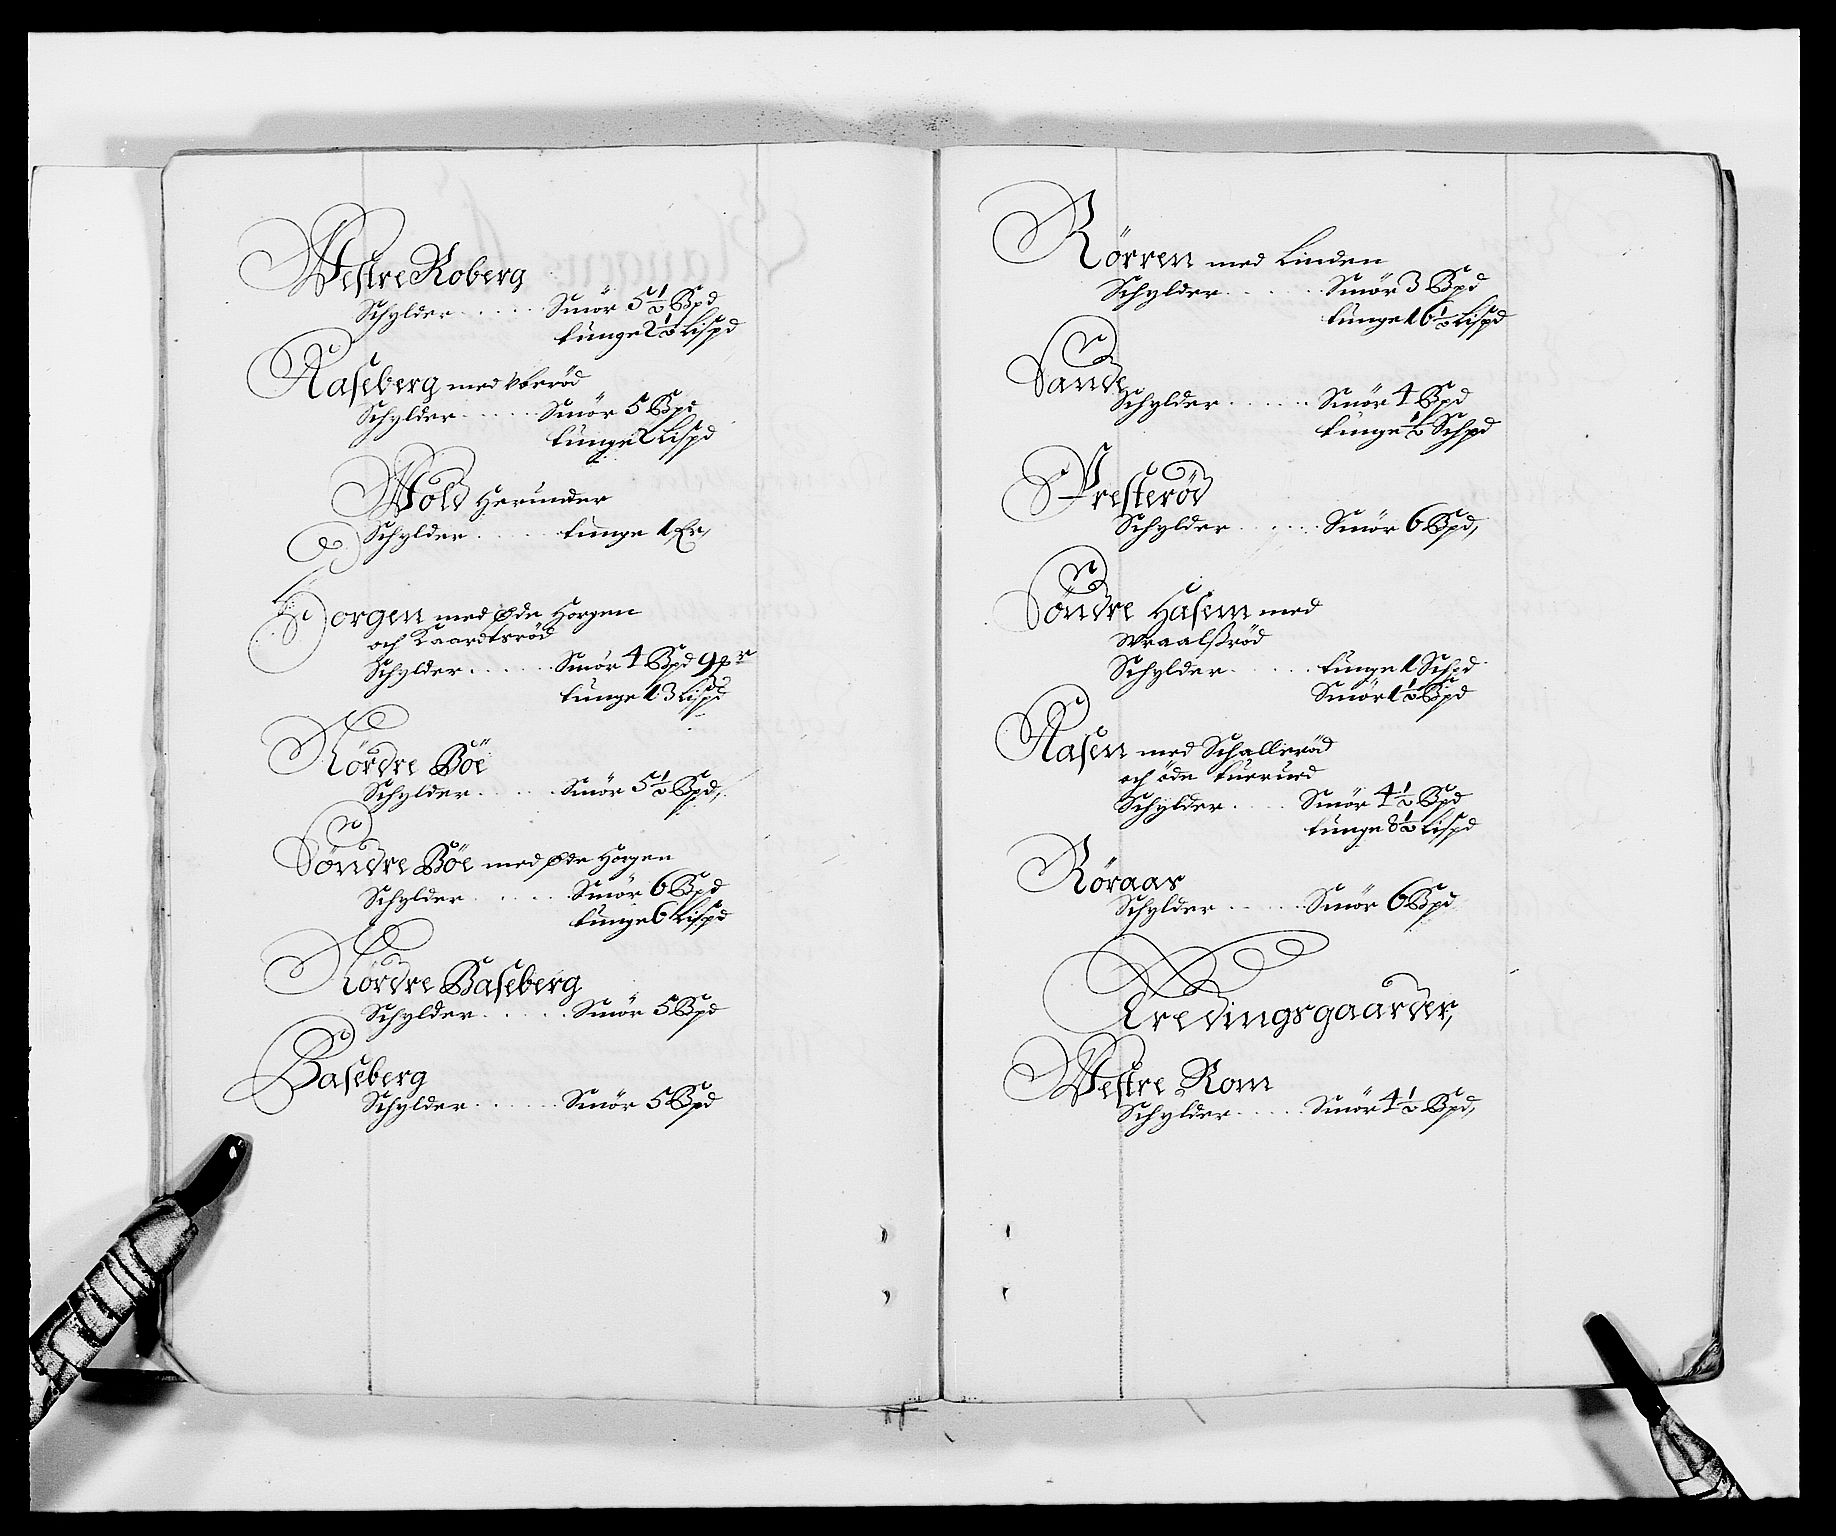 Westre Roberg
Schylder . . . . . . Smör 5½ Bpd
tunge 2½ Lispd
Raseberg med
Schylder . . . . . . Smör 5 Bpd
tunge 2 Lispd
Wold Herunder
Schylder . . . . . tunge 1
Horgen med øde Horgen
och Kaardtsröd
Schylder . . . . . . Smör 4 Bpd 9
tunge 13 Lispd
Nördre Böe
Schylder . . . . . Smör 5½ Bpd,
Söndre Böe med øde Horgen
Schylder . . . . . . Smör 6 Bpd
tunge 6 Lispd
Nördre Baseberg
Schylder . . . . . . Smör 5 Bpd
Baseberg
Schylder . . . . . . Smör 5 Bpd
Rörren med Linden
Schylder . . . . . . Smör 3 Bpd
tunge 16½ Lispd
Sande
Schylder . . . . . . Smör 4 Bpd
tunge ½ Schpd
Presteröd
Schylder . . . . . Smör 6 Bpd,
Söndre Hasem med
Wraalsröd
Schylder . . . . . . tunge 1 Schpd
Smör 1½ Bpd
Aasen med Schalleröd
och öde
Schylder . . . . Smör 4½ Bpd
tunge 8½ Lispd
Röraas
Schylder . . . . . Smör 6 Bpd
Ledingsgaarder,
Westre Rom
Schylder . . . . . Smör 4½ Bpd,